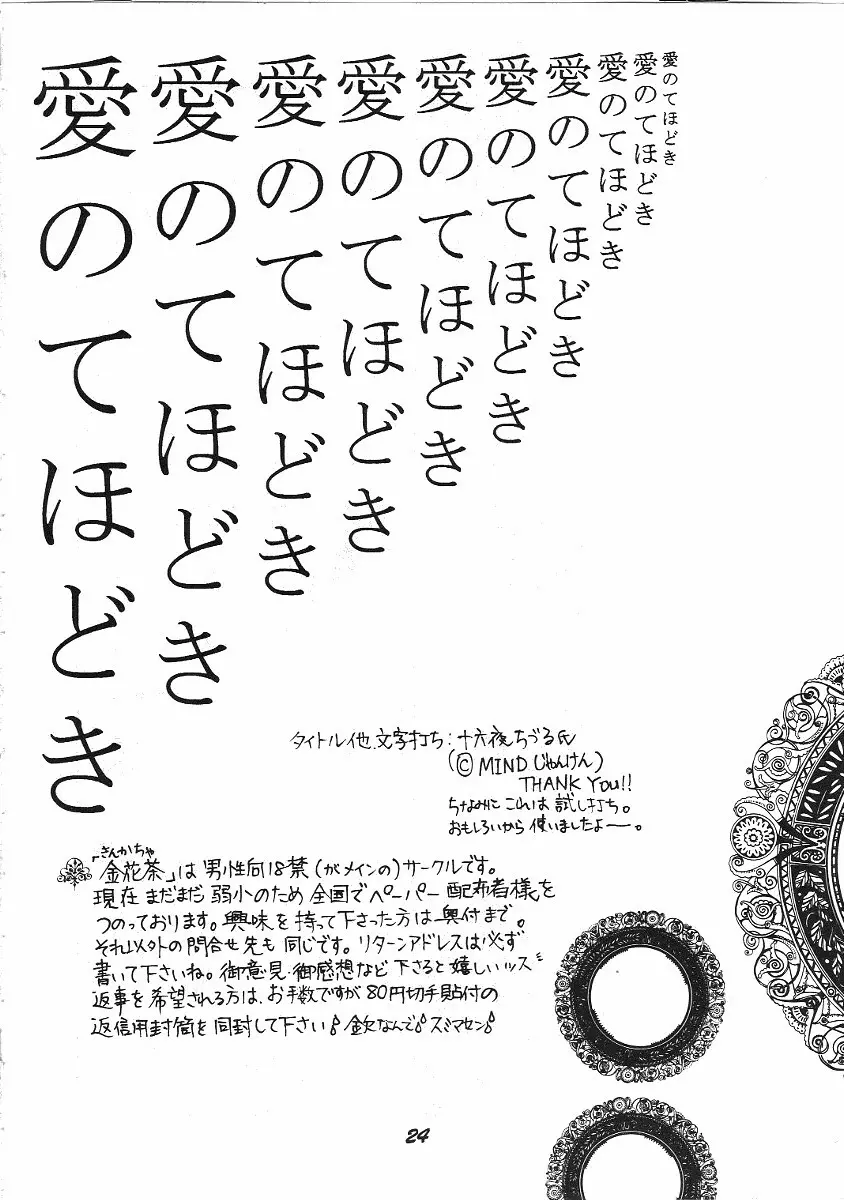 愛のてほどき
愛のてほどき
愛のてほどき
愛のてほどき
愛のてほどき
愛のてほどき
愛のてほどき
愛のてほどき
愛のてほどき
愛のてほどき
タイトル他、文字打ち:十六夜ちづる氏
(©MINDじゃんけん)
THANK You!!
ちなみに これは 試し打ち。
おもしろいから 使いましたよー。
きんかちゃ
「金花茶」は 男性向18禁(がメインの)サークルです。
現在 まだまだ 弱小のため 全国で ペーパー 配布者様を
つのっております。興味を持って下さった方は 奥付まで。
それ以外の問合せ先も 同じです。リターンアドレスは必ず
書いて下さいね。御意見・御感想など 下さると 嬉しいッス
返事を希望される方は、お手数ですが 80円切手貼付の
返信用封筒を同封して下さい 金欠なんで スミマセン
24